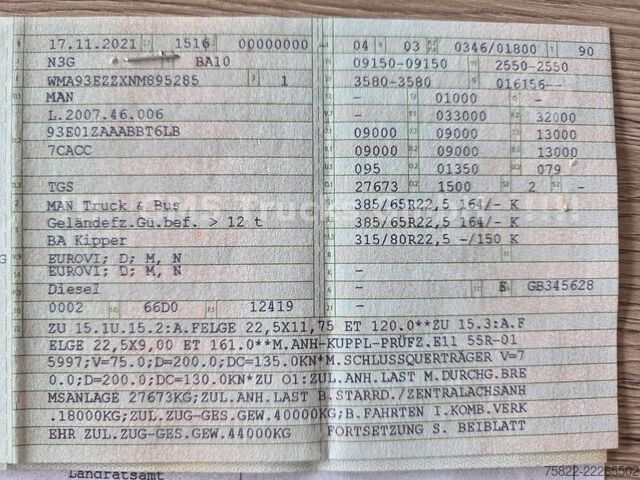 17.11.2021 1516 00000000
N3G BA10
WMA93EZZXNM895285 1
MAN
L.2007.46.006
93E01ZAAABBT6LB
7CACC
TGS
MAN Truck & Bus
Geländefz.Gü.bef. > 12 t
BA Kipper
EUROVI; D; M, N
EUROVI; D; M, N
Diesel
0002 66D0 12419
04 03 0346/01800 90
09150-09150 2550-2550
3580-3580 016156--
- 01000 -
- 033000 32000
09000 09000 13000
09000 09000 13000
095 01350 079
27673 1500 2 -
385/65R22,5 164/- K
385/65R22,5 164/- K
315/80R22,5 -/150 K
-
-
- E GB345628
-
ZU 15.1U.15.2:A.FELGE 22,5X11,75 ET 120.0**ZU 15.3:A.F
ELGE 22,5X9,00 ET 161.0**M.ANH-KUPPL-PRÜFZ.E11 55R-01
5997;V=75.0;D=200.0;DC=135.0KN*M.SCHLUSSQUERTRÄGER V=7
0.0;D=200.0;DC=130.0KN*ZU O1:ZUL.ANH.LAST M.DURCHG.BRE
MSANLAGE 27673KG;ZUL.ANH.LAST B.STARRD./ZENTRALACHSANH
.18000KG;ZUL.ZUG-GES.GEW.40000KG;B.FAHRTEN I.KOMB.VERK
EHR ZUL.ZUG-GES.GEW.44000KG FORTSETZUNG S. BEIBLATT
Landratsamt
75822-22265502